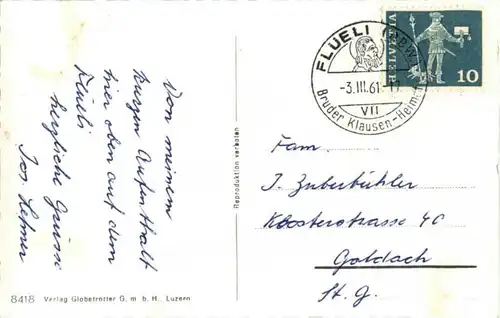 Von meinem
kurzen Aufenthalt
hier oben auf dem
Flüeli
herzliche Grüsse
Jos.
8418 Verlag Globetrotter G. m. b. H. Luzern
Reproduktion verboten
FLUELI
-3.III.61
VII
Bruder Klausen-Heim
HELVETIA
10
Fam.
J. Zuberbühler
Klosterstrasse 40
Goldach
St. G.